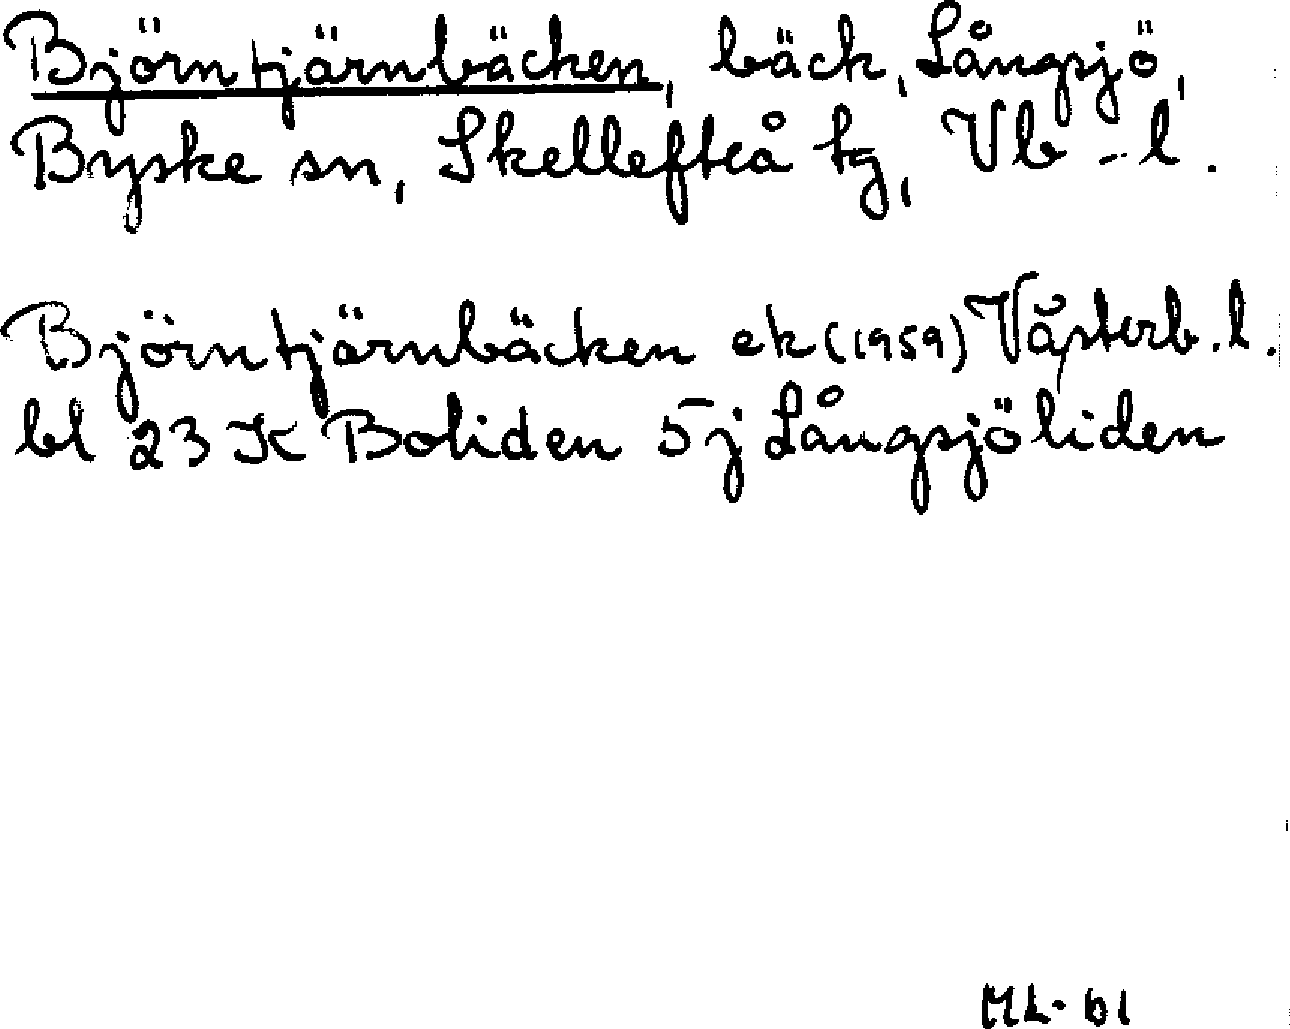 Björntjärnbäcken, bäck, Långsjö,
Byske sn, Skellefteå tg, Vb-l.
Björntjärnbäcken ek (1959) Västerb. l.
bl 23 K Boliden 5 j Långsjöliden